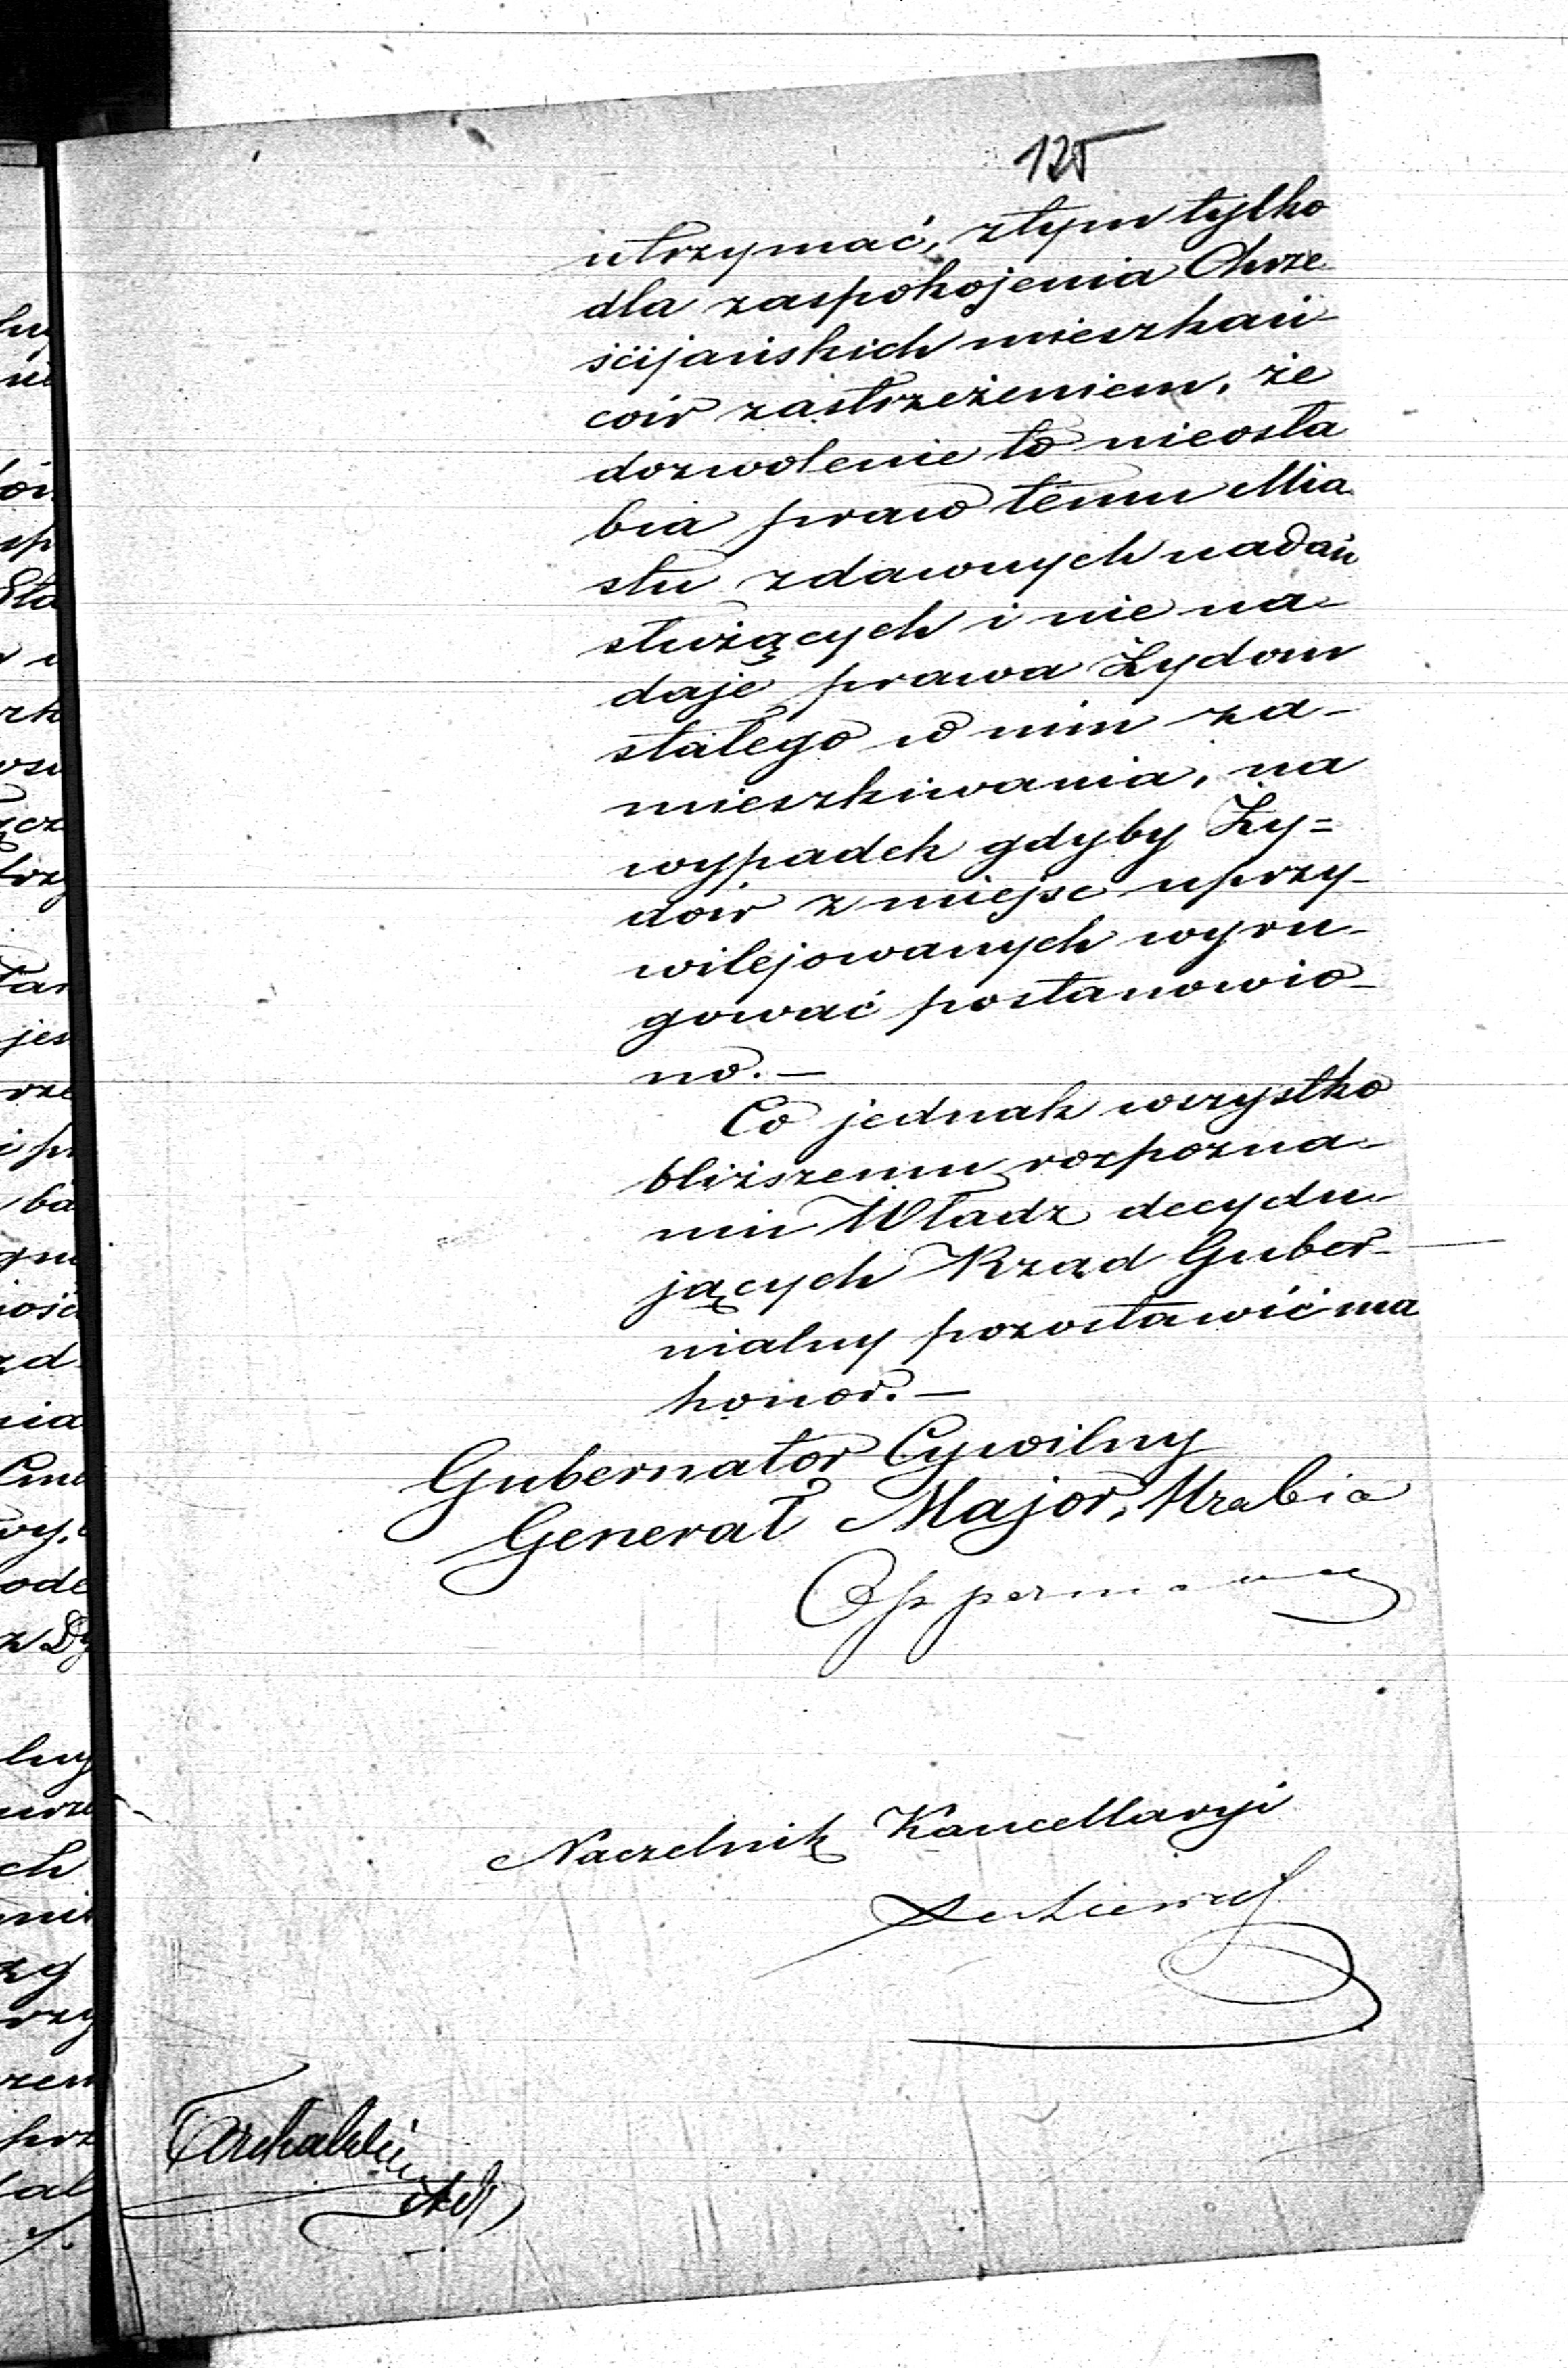 125
utrzymać, ztym tylko
dla zaspokojenia Chrze-
ścijańskich mieszkań-
ców zastrzeżeniem, że
dozwolenie to nieosła
bia praw temu Mia
stu zdawnych nadań
służących i nie na-
daje prawa Żydom
stałego w nim za-
mieszkiwania, na
wypadek gdyby Ży=
dów z miejsc uprzy-
wilejowanych wyru-
gować postanowio-
no.—
Co jednak wszystko
bliższemu rozpozna-
niu Władz decydu-
jących Rząd Guber-
nialny pozostawić ma
honor.—
Gubernator Cywilny
Generał Major, Hrabia
Opperman
Naczelnik Kancellaryi